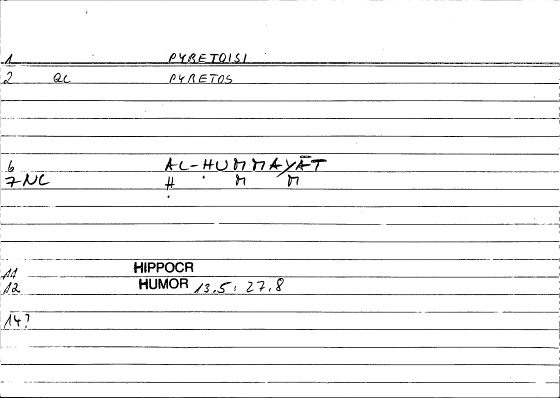 1 PYRETOISI
2 QC PYRETOS
6 AL-ḤUMMAYĀT
7 NC Ḥ M M
11 HIPPOCR
12 HUMOR 13,5; 27,8
14?